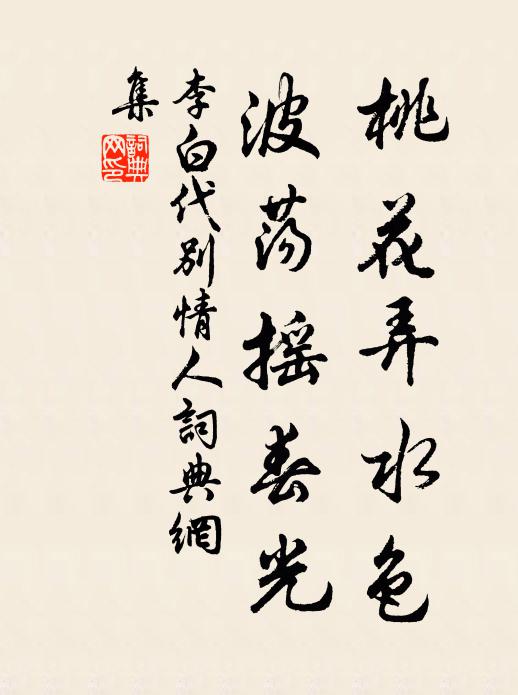 桃花弄水色
波荡摇春光
李白代别情人詞典網
集
詞典
网印